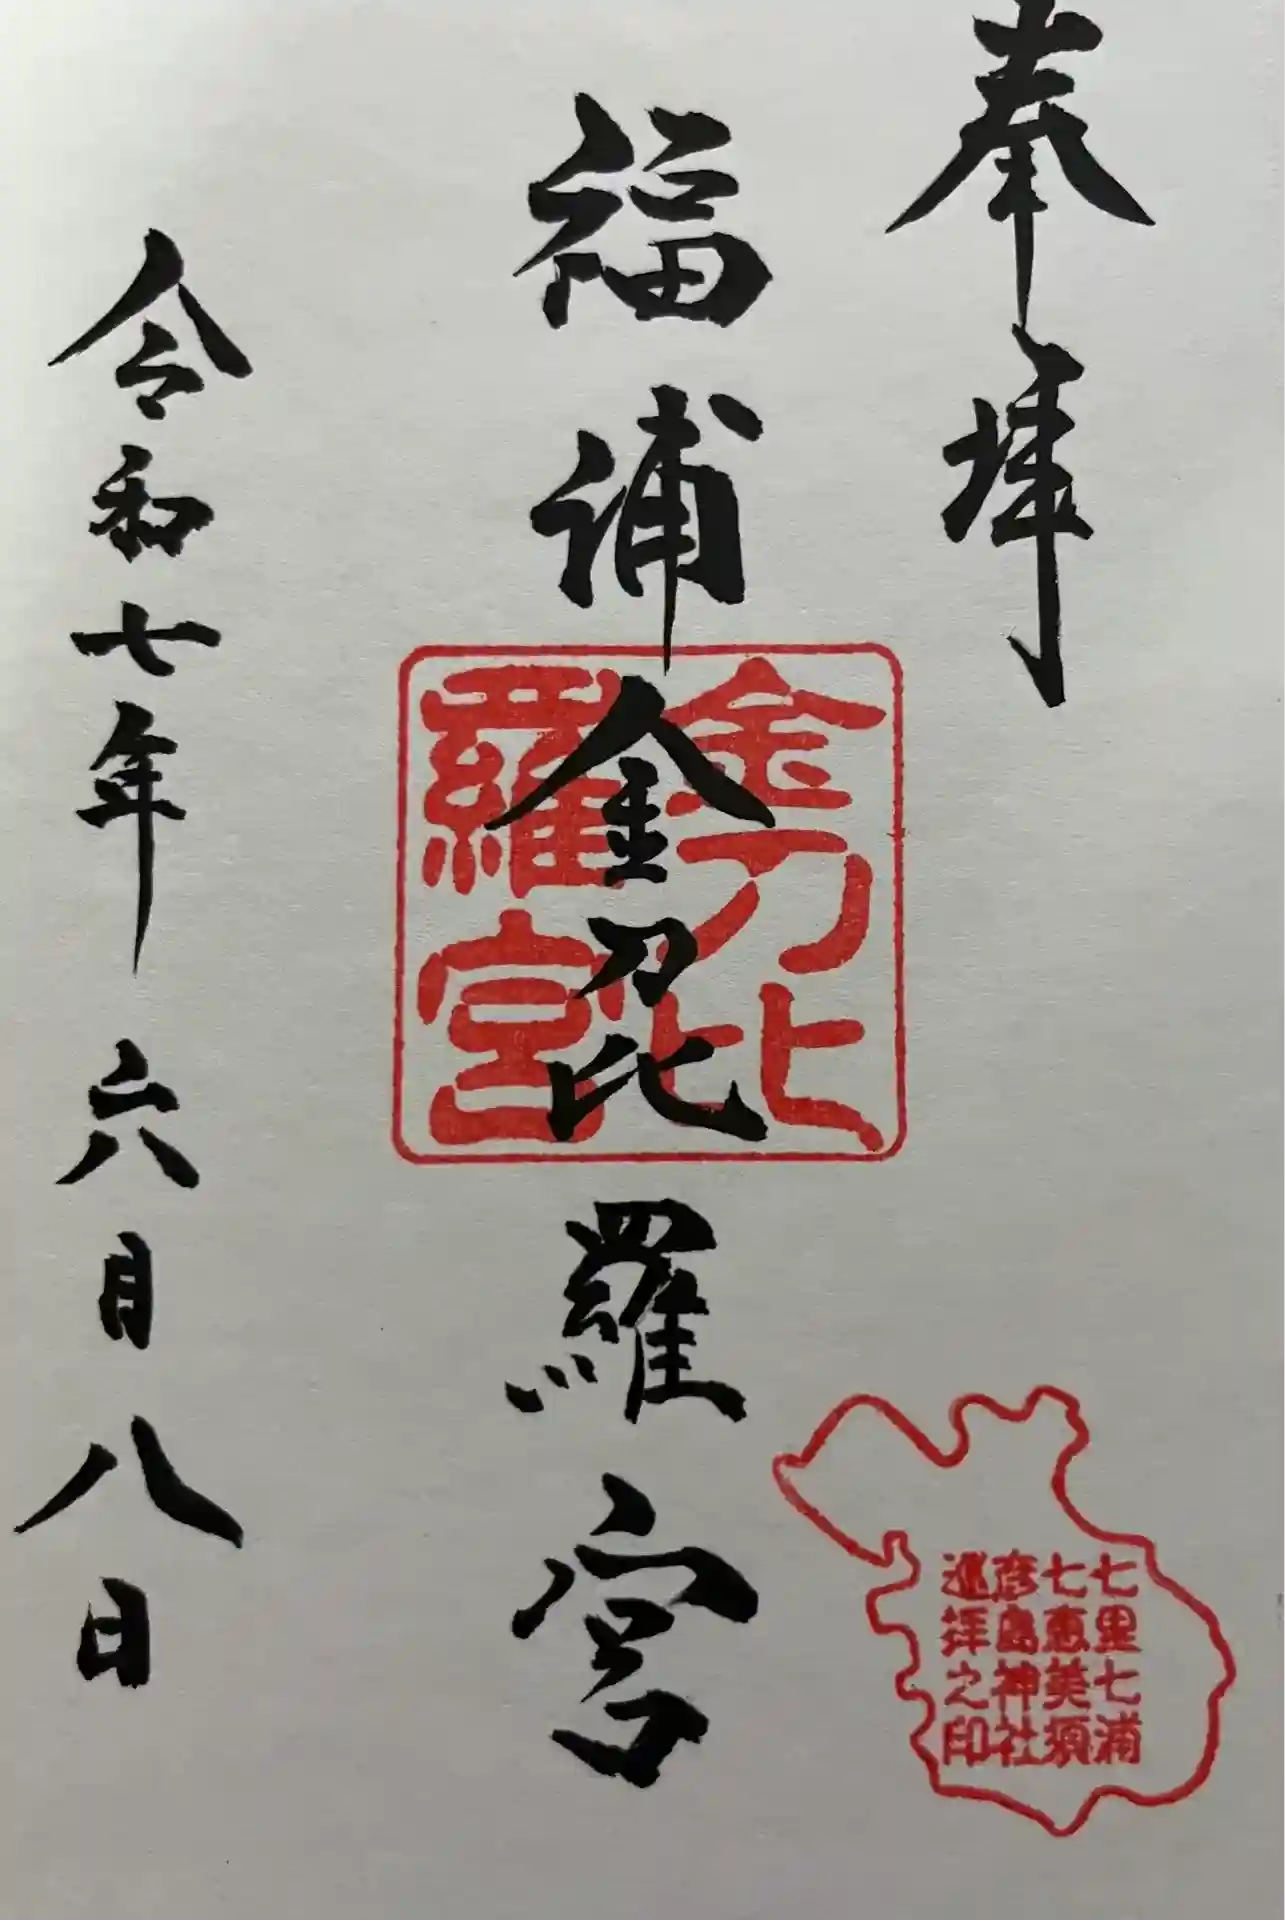 奉拝
福浦金刀比羅宮
金刀比
羅宮
七里七浦
七恵美須
彦島神社
巡拝之印
令和七年六月八日